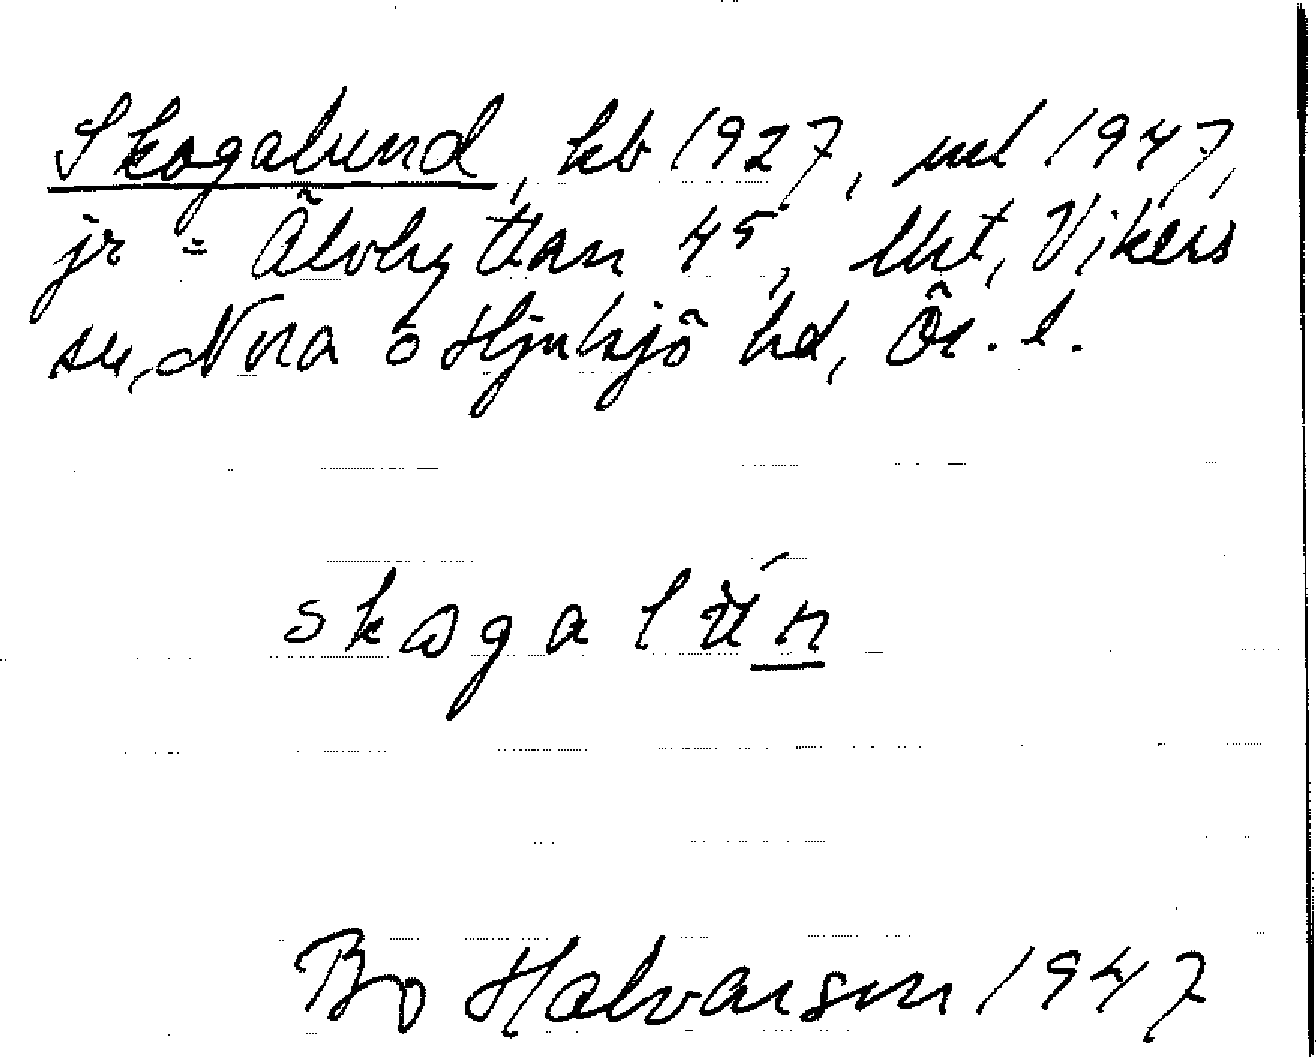 Skogalund, kb 1927, ml 1947,
jr = Älvhyttan 4⁵, Ukt, Vikers
sn, Nora o Hjulsjö hd, Ör. l.
skogalùn
Bo Halvarson 1947